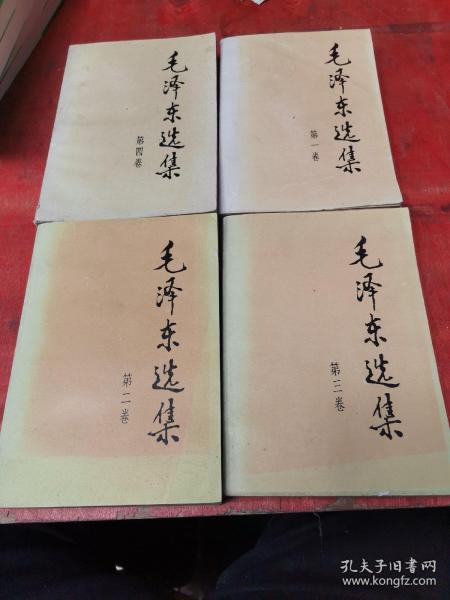 毛泽东选集
第四卷
毛泽东选集
第一卷
毛泽东选集
第二卷
毛泽东选集
第三卷
孔夫子旧书网
www.kongfz.com